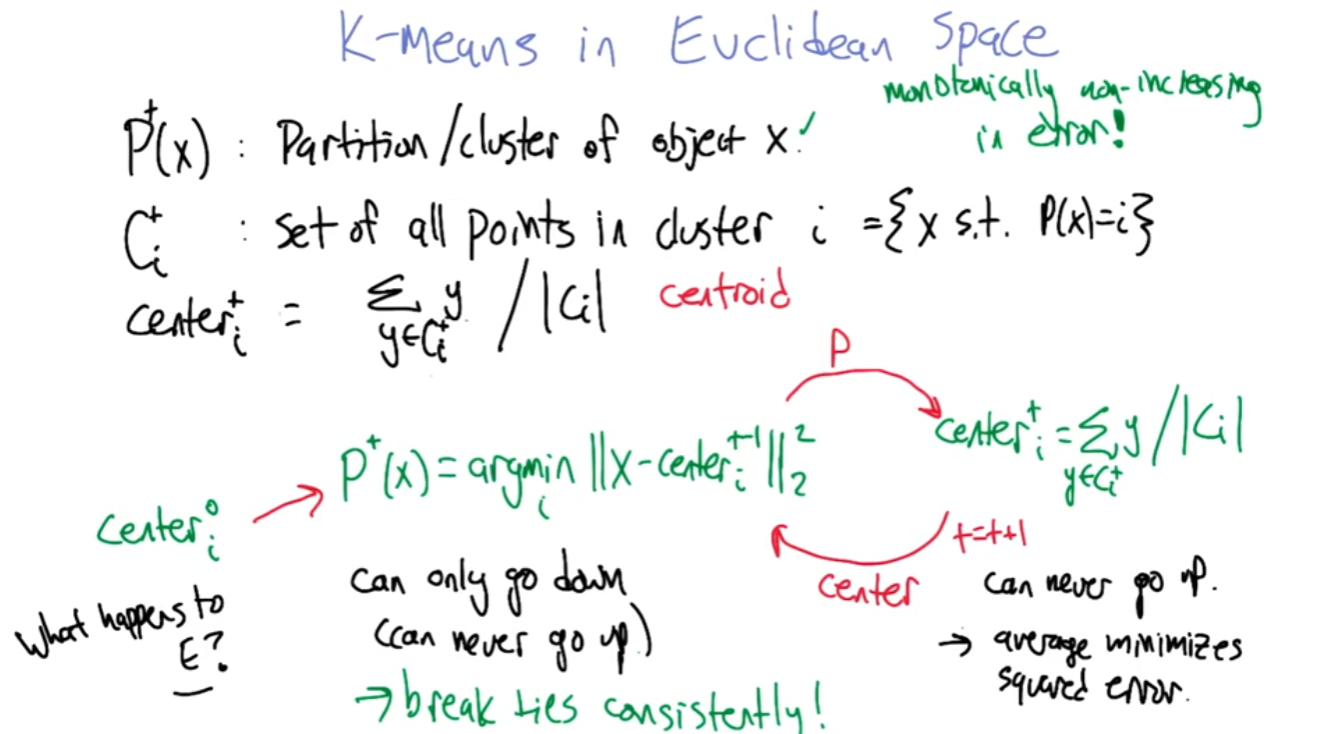 K-means in Euclidean Space
monotonically non-increasing
in error!
Pᵗ(x) : Partition/cluster of object x. ✓
Cᵢᵗ : set of all points in cluster i = {x s.t. P(x)=i}
centerᵢᵗ = Σ_{y∈Cᵢᵗ} y / |Cᵢ| centroid
P
Pᵗ(x) = argminᵢ ||x - centerᵢᵗ⁻¹||₂²
centerᵢᵗ = Σ_{y∈Cᵢᵗ} y / |Cᵢ|
centerᵢ⁰
t=t+1
center
what happens to
E?
can only go down
(can never go up)
→ break ties consistently!
can never go up.
→ average minimizes
squared error.